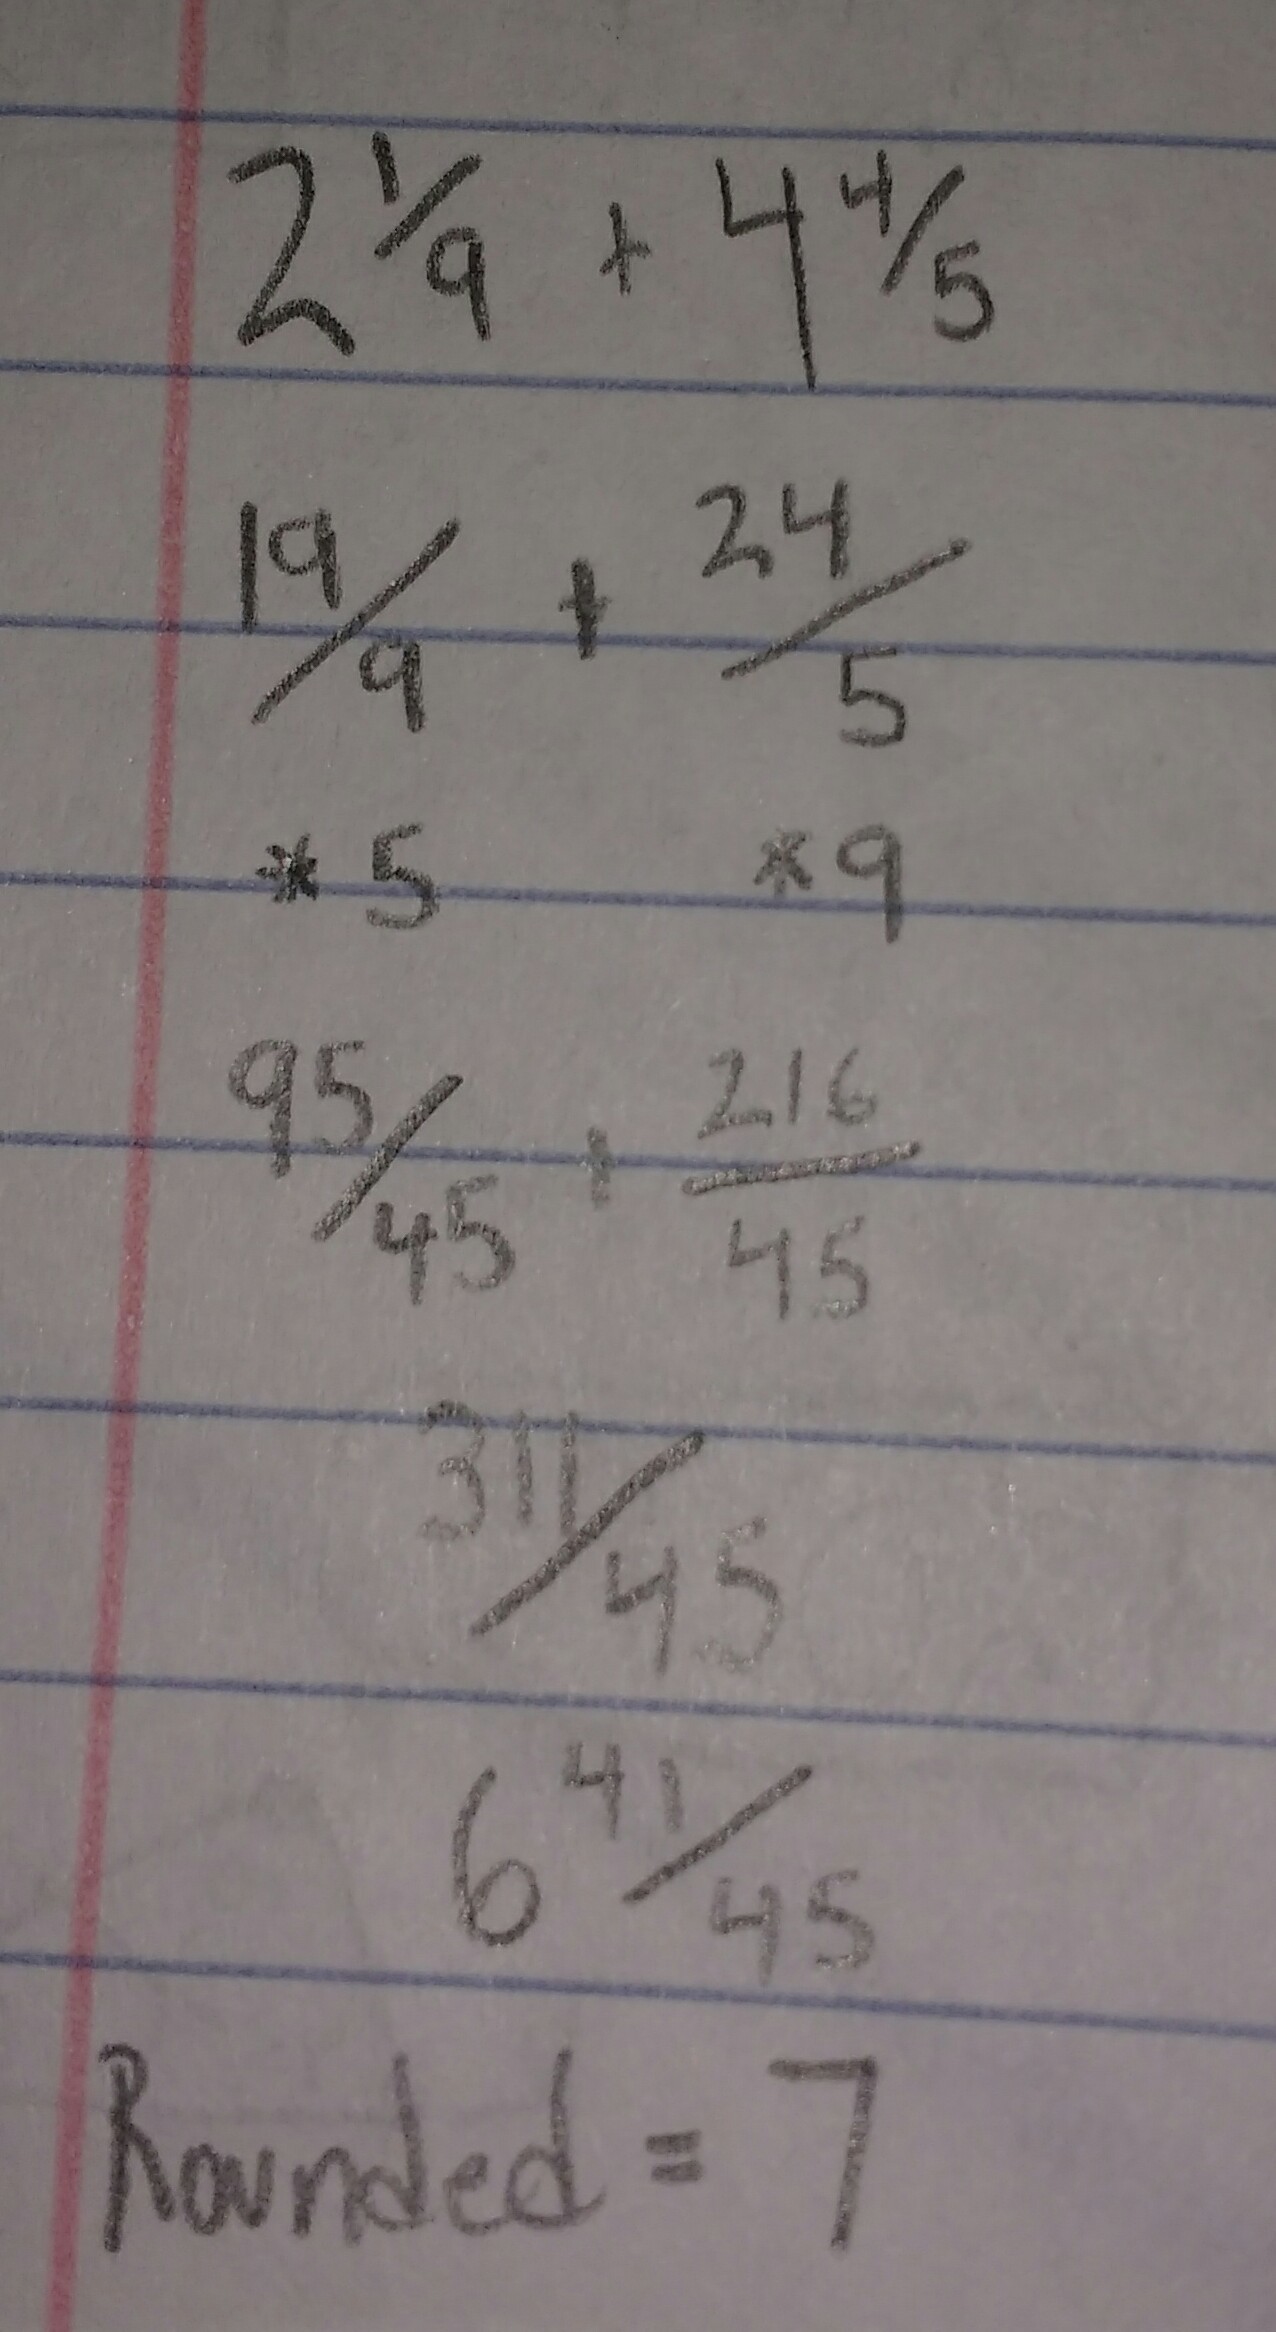 2 1/9 + 4 4/5
19/9 + 24/5
* 5 * 9
95/45 + 216/45
311/45
6 41/45
Rounded = 7